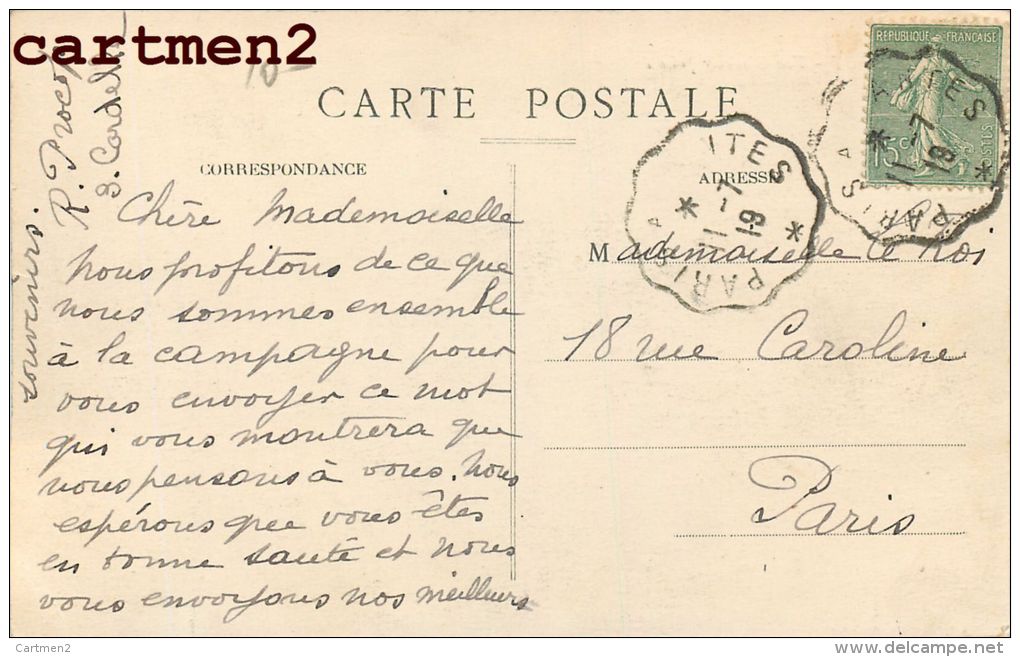 cartmen2
RÉPUBLIQUE FRANÇAISE
15c
POSTES
CARTE POSTALE
CORRESPONDANCE
ADRESSE
PARIS A
ITES
11-7
19
PARIS A
ITES
11-7
19
Chère Mademoiselle
Nous profitons de ce que
nous sommes ensemble
à la campagne pour
vous envoyer ce mot
qui vous montrera que
nous pensons à vous. Nous
espérons que vous êtes
en bonne santé et nous
vous envoyons nos meilleurs
souvenirs
R. Procop
Mademoiselle Le Roi
18 rue Caroline
Paris
Cartmen2
www.delcampe.net